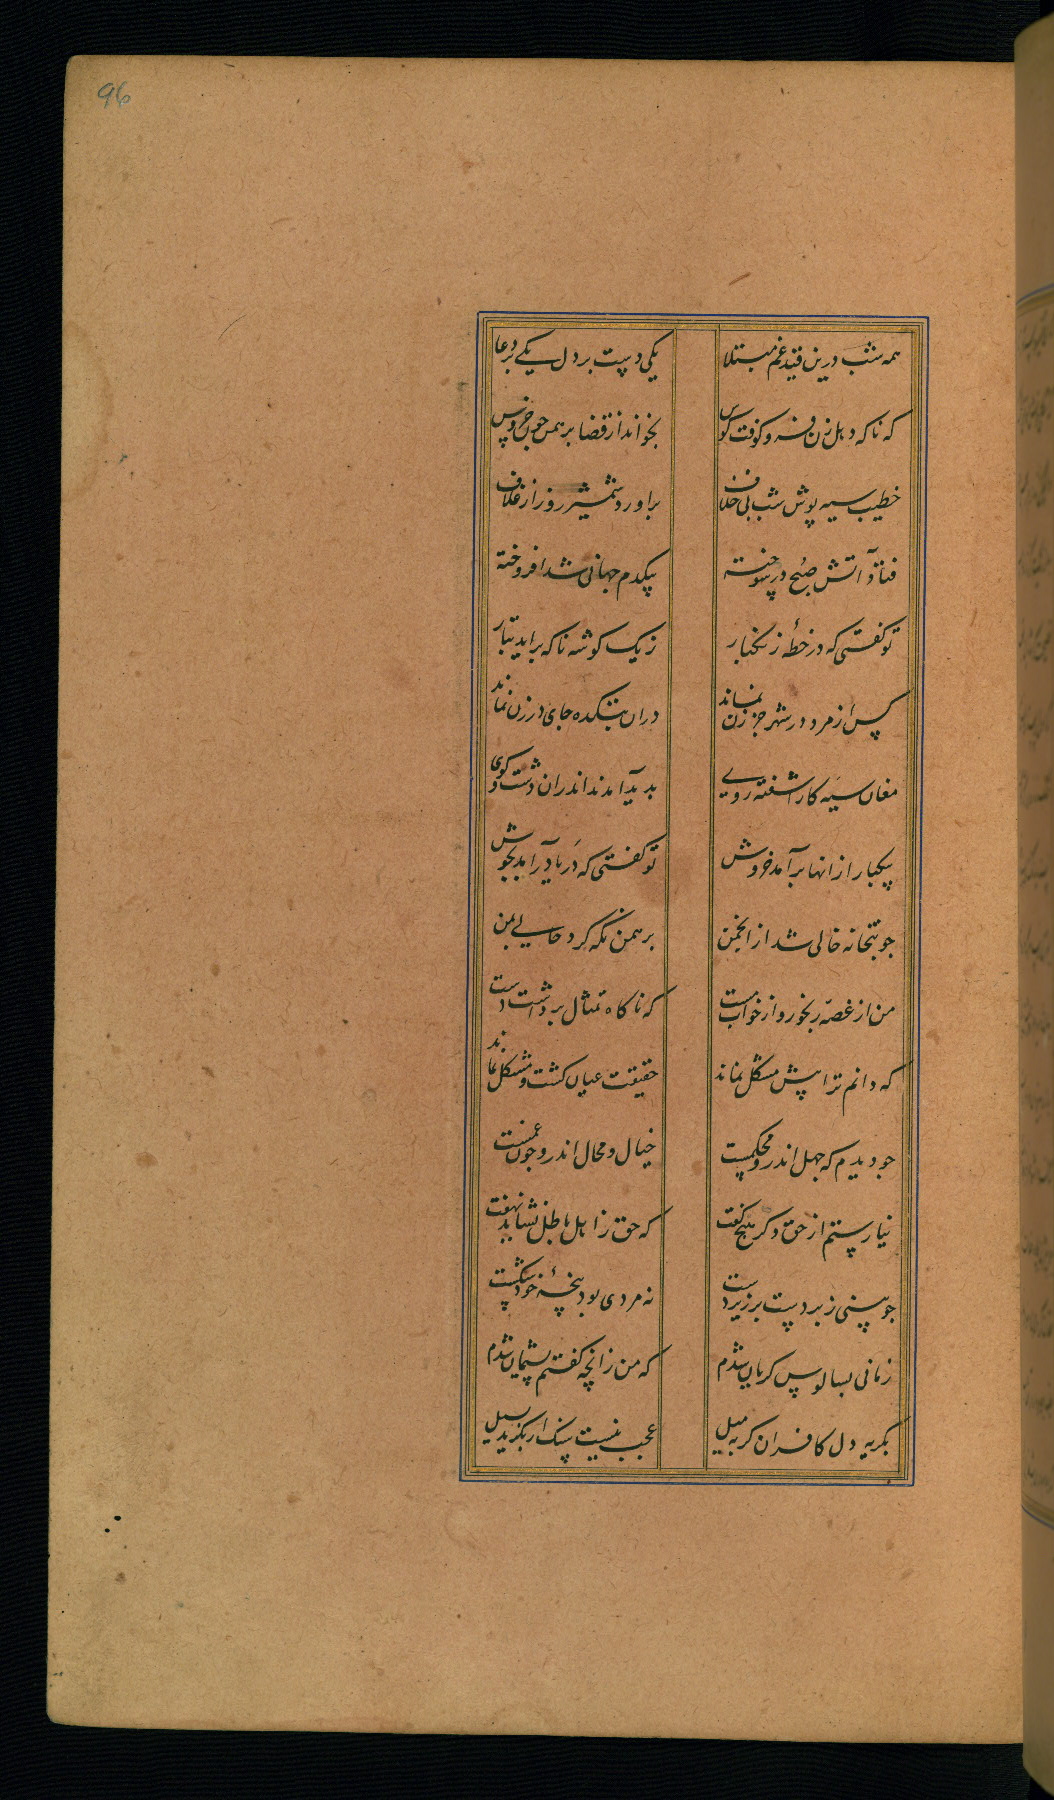 96
همه شب درین قید غم مبتلا یکی دست بر دل یکی بر دعا
که ناکه دهل زن فرو کوفت کوس بخواند از قضا برهمن جون خروس
خطیب سیه پوش شب بی خلاف براورد شمشیر روز از غلاف
فتاد آتش صبح در سوخته بیکدم جهانی شد افروخته
تو کفتی که در خطهٔ زنکبار ز یک کوشه ناکه براید تتار
کس از مرد در شهر جز زن نماند دران بتکده جای درزن نماند
مغان سیه کار اشفته روی بدید آمدند اندران دشت و کوی
بیکبار از انها برآمد خروش تو کفتی که دریا درآمد بجوش
جو بتخانه خالی شد از انجمن برهمن نکه کرد خالی بمن
من از غصه رنجور و از خواب مست که ناکاه تمثال برداشت دست
که دانم ترا بیش مشکل نماند حقیقت عیان کشت و مشکل نماند
جو دیدم که جهل اندرو محکمست خیال و محال اندرو جون غمست
نیارستم از حق دکر هیچ کفت که حق ز اهل باطل نشاید نهفت
جو بینی زبردست بر زیردست نه مردی بود پنجهٔ خود شکست
زمانی بسالوس کریان شدم که من زانچه کفتم پشیمان شدم
بکریه دل کافران کرد میل عجب نیست سنک ار بکردد بسیل